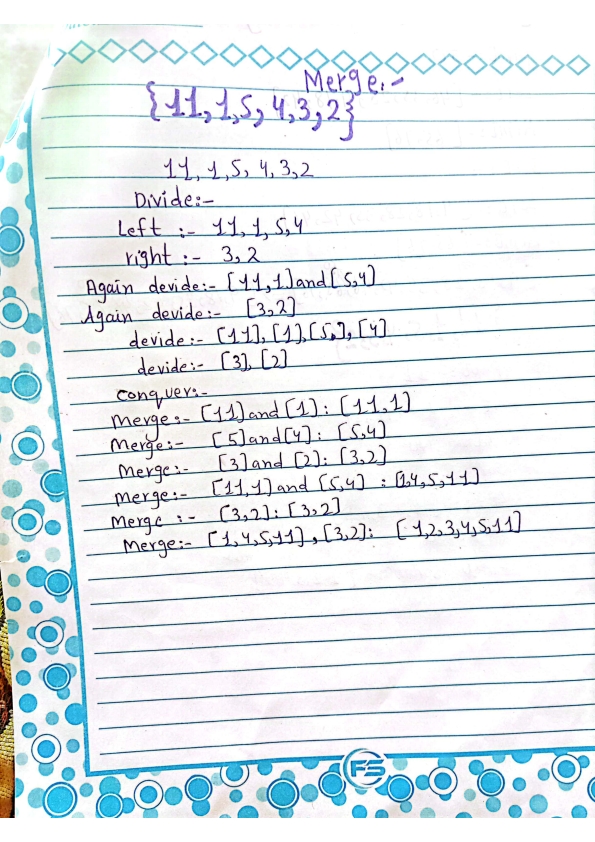 Merge:-
{11,1,5,4,3,2}
11, 1, 5, 4, 3, 2
Divide:-
Left :- 11, 1, 5, 4
right :- 3, 2
Again devide:- [11,1] and [5,4]
Again devide:- [3,2]
devide:- [11], [1], [5,], [4]
devide:- [3], [2]
Conquer:-
Merge:- [11] and [1] : [11,1]
Merge:- [5] and [4] : [5,4]
Merge:- [3] and [2] : [3,2]
Merge:- [11,1] and [5,4] : [1,4,5,11]
Merge :- [3,2] : [3,2]
Merge:- [1,4,5,11] , [3,2] : [1,2,3,4,5,11]
FS